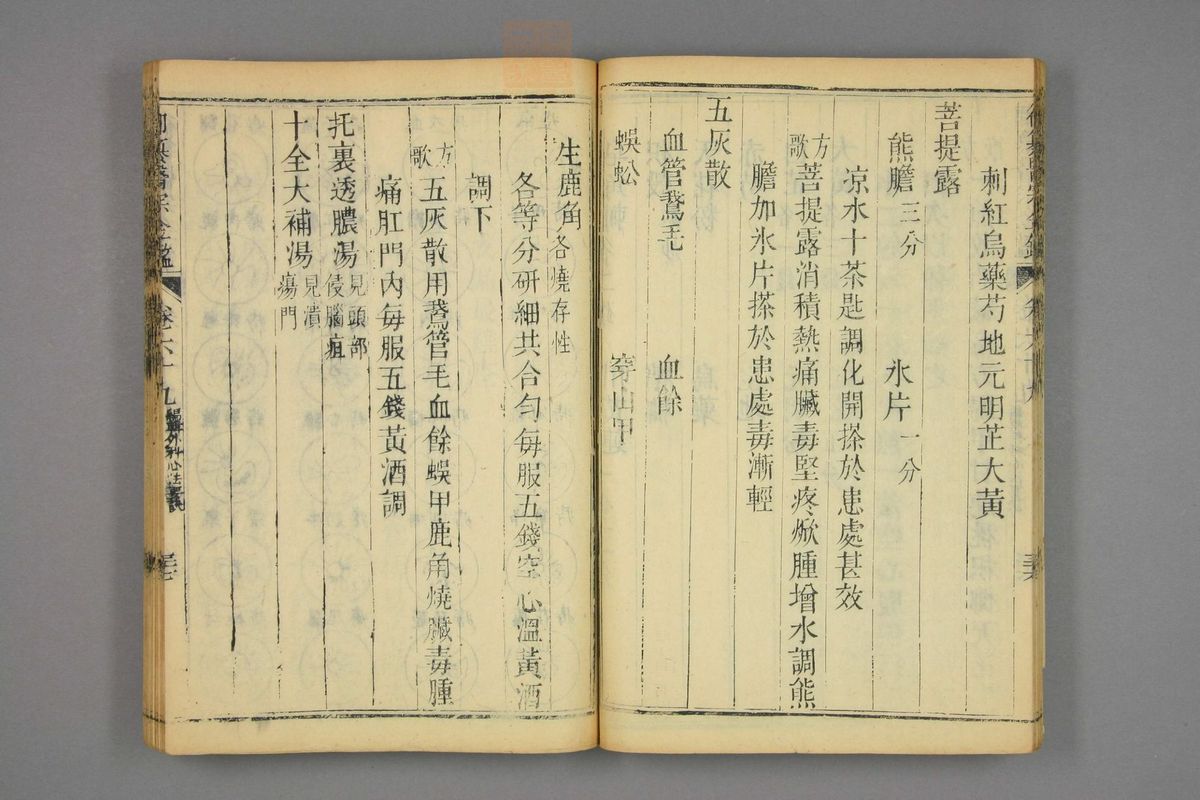 刺紅烏藥芍地元明芷大黃
菩提露
熊膽三分 氷片一分
凉水十茶匙調化開搽於患處甚效
方歌 菩提露消積熱痛臟毒堅疼焮腫增水調熊
膽加氷片搽於患處毒漸輕
五灰散
血管鵞毛 血餘
蜈蚣 穿山甲
生鹿角各燒存性
各等分研細共合勻每服五錢空心溫黃酒
調下
方歌 五灰散用鵞管毛血餘蜈甲鹿角燒臟毒腫
痛肛門內每服五錢黃酒調
托裏透膿湯見頭部侵腦疽
十全大補湯見潰瘍門
御纂醫宗金鑑 卷六十九 編輯外科心法要訣